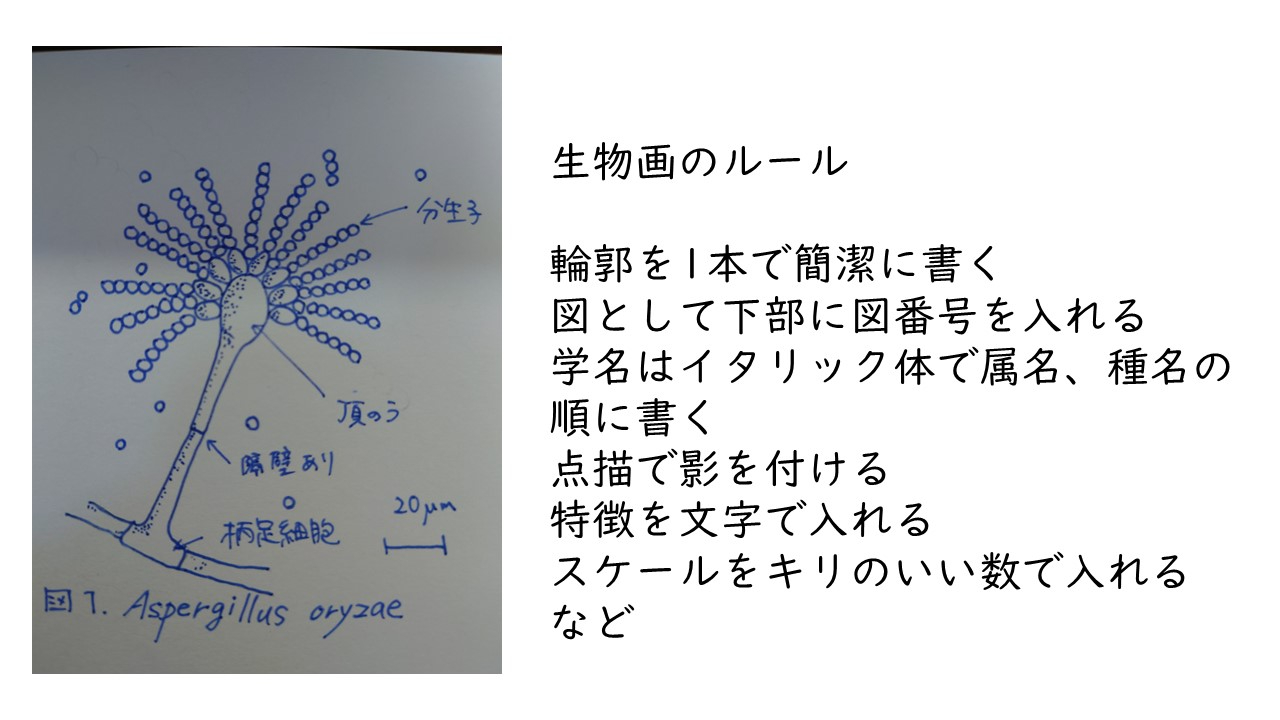 分生子
頂のう
隔壁あり
20μm
柄足細胞
図1. Aspergillus oryzae
生物画のルール
輪郭を1本で簡潔に書く
図として下部に図番号を入れる
学名はイタリック体で属名、種名の
順に書く
点描で影を付ける
特徴を文字で入れる
スケールをキリのいい数で入れる
など